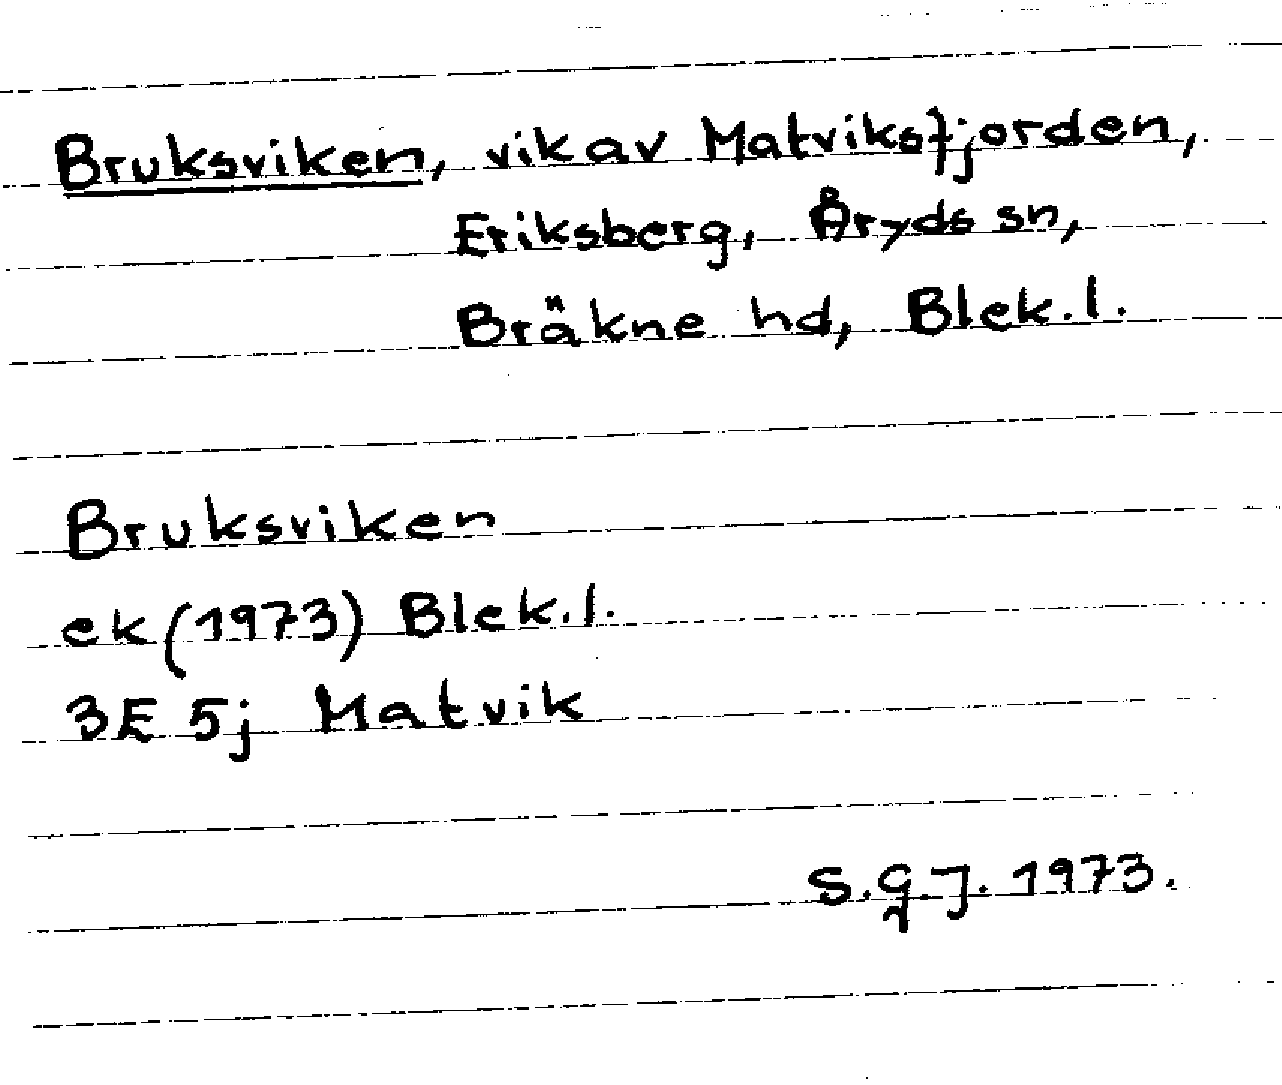 Bruksviken, vik av Matviksfjorden,
Eriksberg, Åryds sn,
Bräkne hd, Blek.l.
Bruksviken
ek (1973) Blek.l.
3E 5j Matvik
S.G.J. 1973.